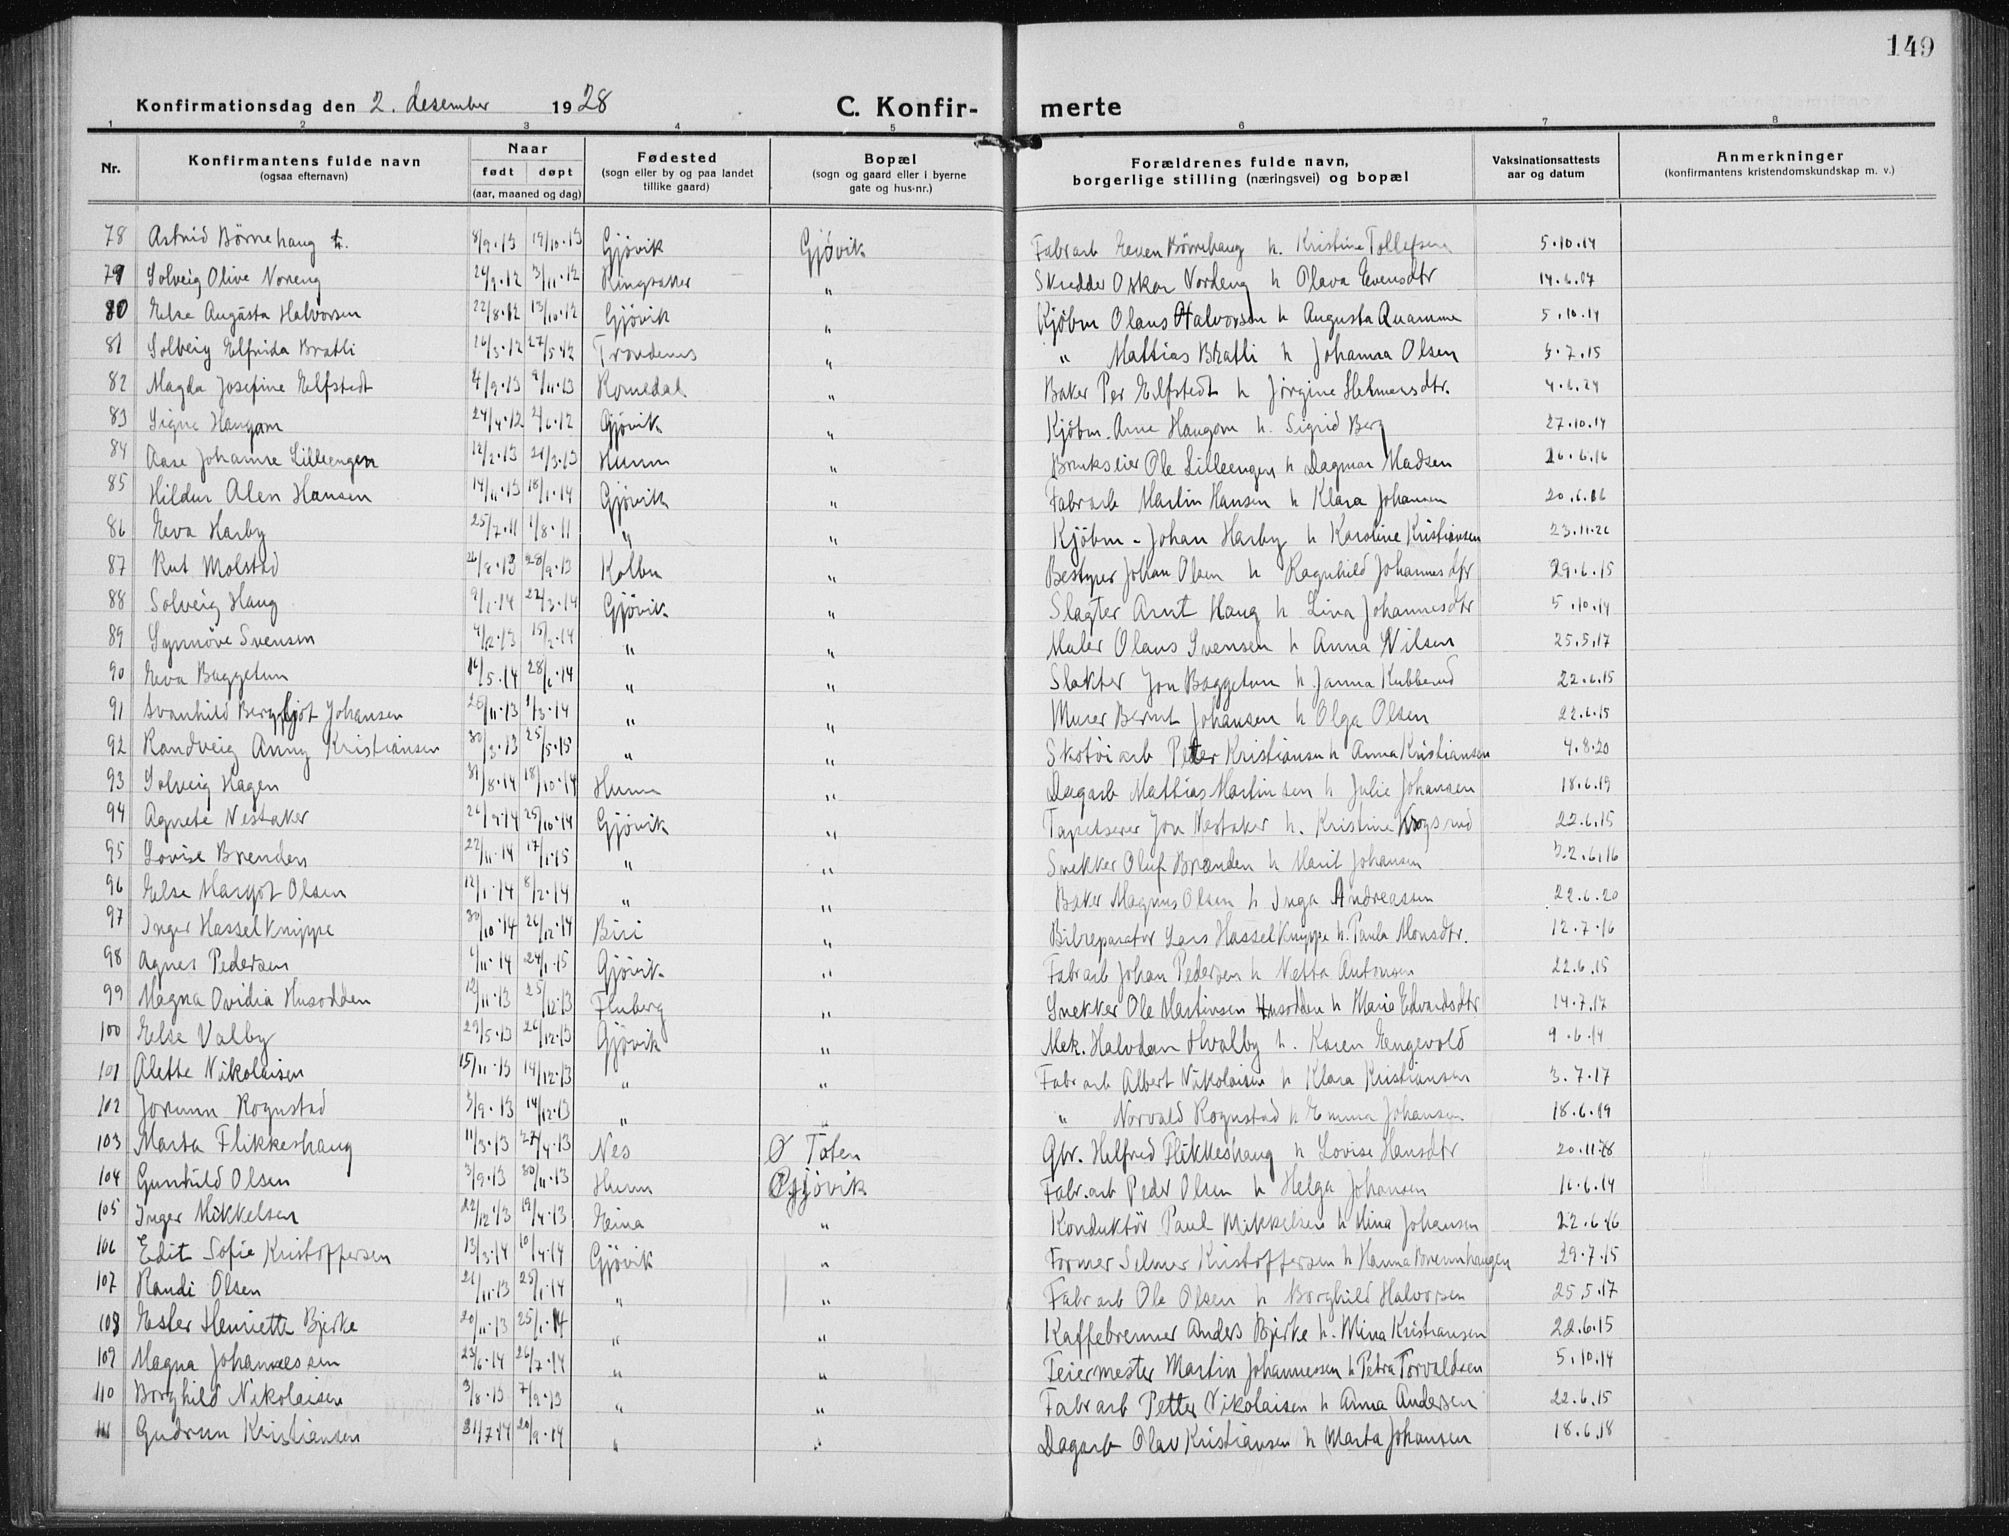 149
Konfirmationsdag den 2. desember 1928 C. Konfir- merte
1 2 3 4 5 6 7 8
Nr. Konfirmantens fulde navn (ogsaa efternavn) Naar født døpt (aar, maaned og dag) Fødested (sogn eller by og paa landet tillike gaard) Bopæl (sogn og gaard eller i byerne gate og hus-nr.) Forældrenes fulde navn, borgerlige stilling (næringsvei) og bopæl Vaksinationsattests aar og datum Anmerkninger (konfirmantens kristendomskundskap m. v.)
78 Astrid Børnehaug 8/9.13 19/10.13 Gjøvik Gjøvik Fabrarb Even Børnehaug h. Kristine Tollefsen 5.10.14
79 Solveig Olive Noreng 26/9.12 3/11.12 Ringsaker " Skredder Oskar Nordeng h Olava Evensdtr 14.6.17
80 Else Augusta Halvorsen 22/8.12 13/10.12 Gjøvik " Kjøbm Olaus Halvorsen h Augusta Quamme 5.10.14
81 Solveig Elfrida Bratli 26/3.12 27/5.12 Trondenes " " Mattias Bratli h Johanna Olsen 3.7.15
82 Magda Josefine Elfstedt 4/9.13 9/11.13 Romedal " Baker Per Elfstedt h Jørgine Helmersdtr. 4.6.24
83 Signe Haugom 24/4.12 2/6.12 Gjøvik " Kjøbm. Arne Haugom h. Sigrid Berg 27.10.14
84 Aase Johanne Lilleengen 12/2.13 21/3.13 Hunn " Brukseier Ole Lilleengen h Dagmar Madsen 26.6.16
85 Hildur Alen Hansen 14/11.13 18/1.14 Gjøvik " Fabrarb Martin Hansen h Klara Johansen 20.6.16
86 Eva Harby 25/7.11 1/8.11 " " Kjøbm - Johan Harby h Karoline Kristiansen 23.11.26
87 Rut Molstad 26/8.13 28/9.13 Kolbu " Bestyrer Johan Olsen h Ragnhild Johannesdtr 29.6.15
88 Solveig Haug 9/1.14 22/3.14 Gjøvik " Slagter Arnt Haug h Lina Johannesdtr 5.10.14
89 Synnøve Svensen 4/12.13 15/2.14 " " Maler Olaus Svensen h Anna Nilsen 25.5.17
90 Eva Baggetun 16/5.14 28/6.14 " " Slakter Jon Baggetun h Janna Kubberud 22.6.15
91 Svanhild Bergljot Johansen 26/11.13 1/3.14 " " Murer Bernt Johansen h Olga Olsen 22.6.15
92 Randveig Anny Kristiansen 30/3.13 25/5.15 " " Skotøiarb Peter Kristiansen h Anna Kristiansen 4.8.20
93 Solveig Hagen 31/8.14 18/10.14 Hunn " Dagarb Mattias Martinsen h Julie Johansen 18.6.19
94 Agnete Nestaker 26/9.14 25/10.14 Gjøvik " Tapetserer Jon Nestaker h. Kristine Krogsrud 22.6.15
95 Lovise Brenden 22/11.14 17/1.15 " " Snekker Oluf Brænden h Marit Johansen 22.6.16
96 Else Margot Olsen 12/1.14 8/2.14 " " Baker Magnus Olsen h Inga Andreassen 22.6.20
97 Inger Hasselknippe 30/10.14 26/12.14 Biri " Bilreparatør Lars Hasselknippe h. Paula Monsdtr. 12.7.16
98 Agnes Pedersen 6/11.14 24/1.15 Gjøvik " Fabrarb Johan Pedersen h Netta Antonsen 22.6.15
99 Magna Ovidia Husodden 12/11.13 25/12.13 Fluberg " Snekker Ole Martinsen Husodden h Marie Edvardsdtr 14.7.17
100 Else Valby 29/5.13 26/12.13 Gjøvik " Mek. Halvdan Hvalby h. Karen Engevold 9.6.14
101 Alette Nikolaisen 15/11.13 14/12.13 " " Fabrarb Albert Nikolaisen h Klara Kristiansen 3.7.17
102 Jorunn Rognstad 3/9.13 14/12.13 " " " Norvald Rognstad h Emma Johansen 18.6.19
103 Marta Flikkeshaug 11/3.13 27/4.13 Nes Ø Toten Gbr. Helfred Flikkeshaug h Lovise Hansdtr 20.11.28
104 Gunhild Olsen 3/9.13 30/11.13 Hunn Gjøvik Fabr.arb Peder Olsen h Helga Johansen 16.6.14
105 Inger Mikkelsen 22/12.13 19/4.13 Eina " Konduktør Paul Mikkelsen h Mina Johansen 22.6.16
106 Edit Sofie Kristoffersen 13/3.14 10/4.14 Gjøvik " Former Selmer Kristoffersen h Hanna Brennhaugen 29.7.15
107 Randi Olsen 21/11.13 25/1.14 " " Fabrarb Ole Olsen h Borghild Halvorsen 25.5.17
108 Ester Henriette Bjerke 20/11.13 25/1.14 " " Kaffebrenner Anders Bjerke h. Mina Kristiansen 22.6.15
109 Magna Johannessen 23/6.14 26/7.14 " " Feiermester Martin Johannessen h Petra Torvaldsen 5.10.14
110 Borghild Nikolaisen 3/8.13 7/9.13 " " Fabrarb Petter Nikolaisen h Anna Andersen 22.6.15
111 Gudrun Kristiansen 31/7.14 20/9.14 " " Dagarb Olav Kristiansen h Marta Johansen 18.6.18